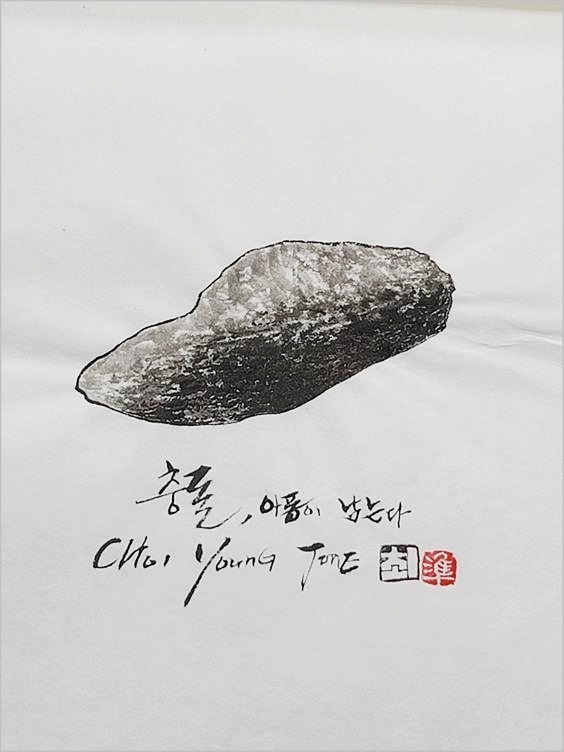 충돌, 아픔이 남는다
CHOI YOUNG JUNE 準